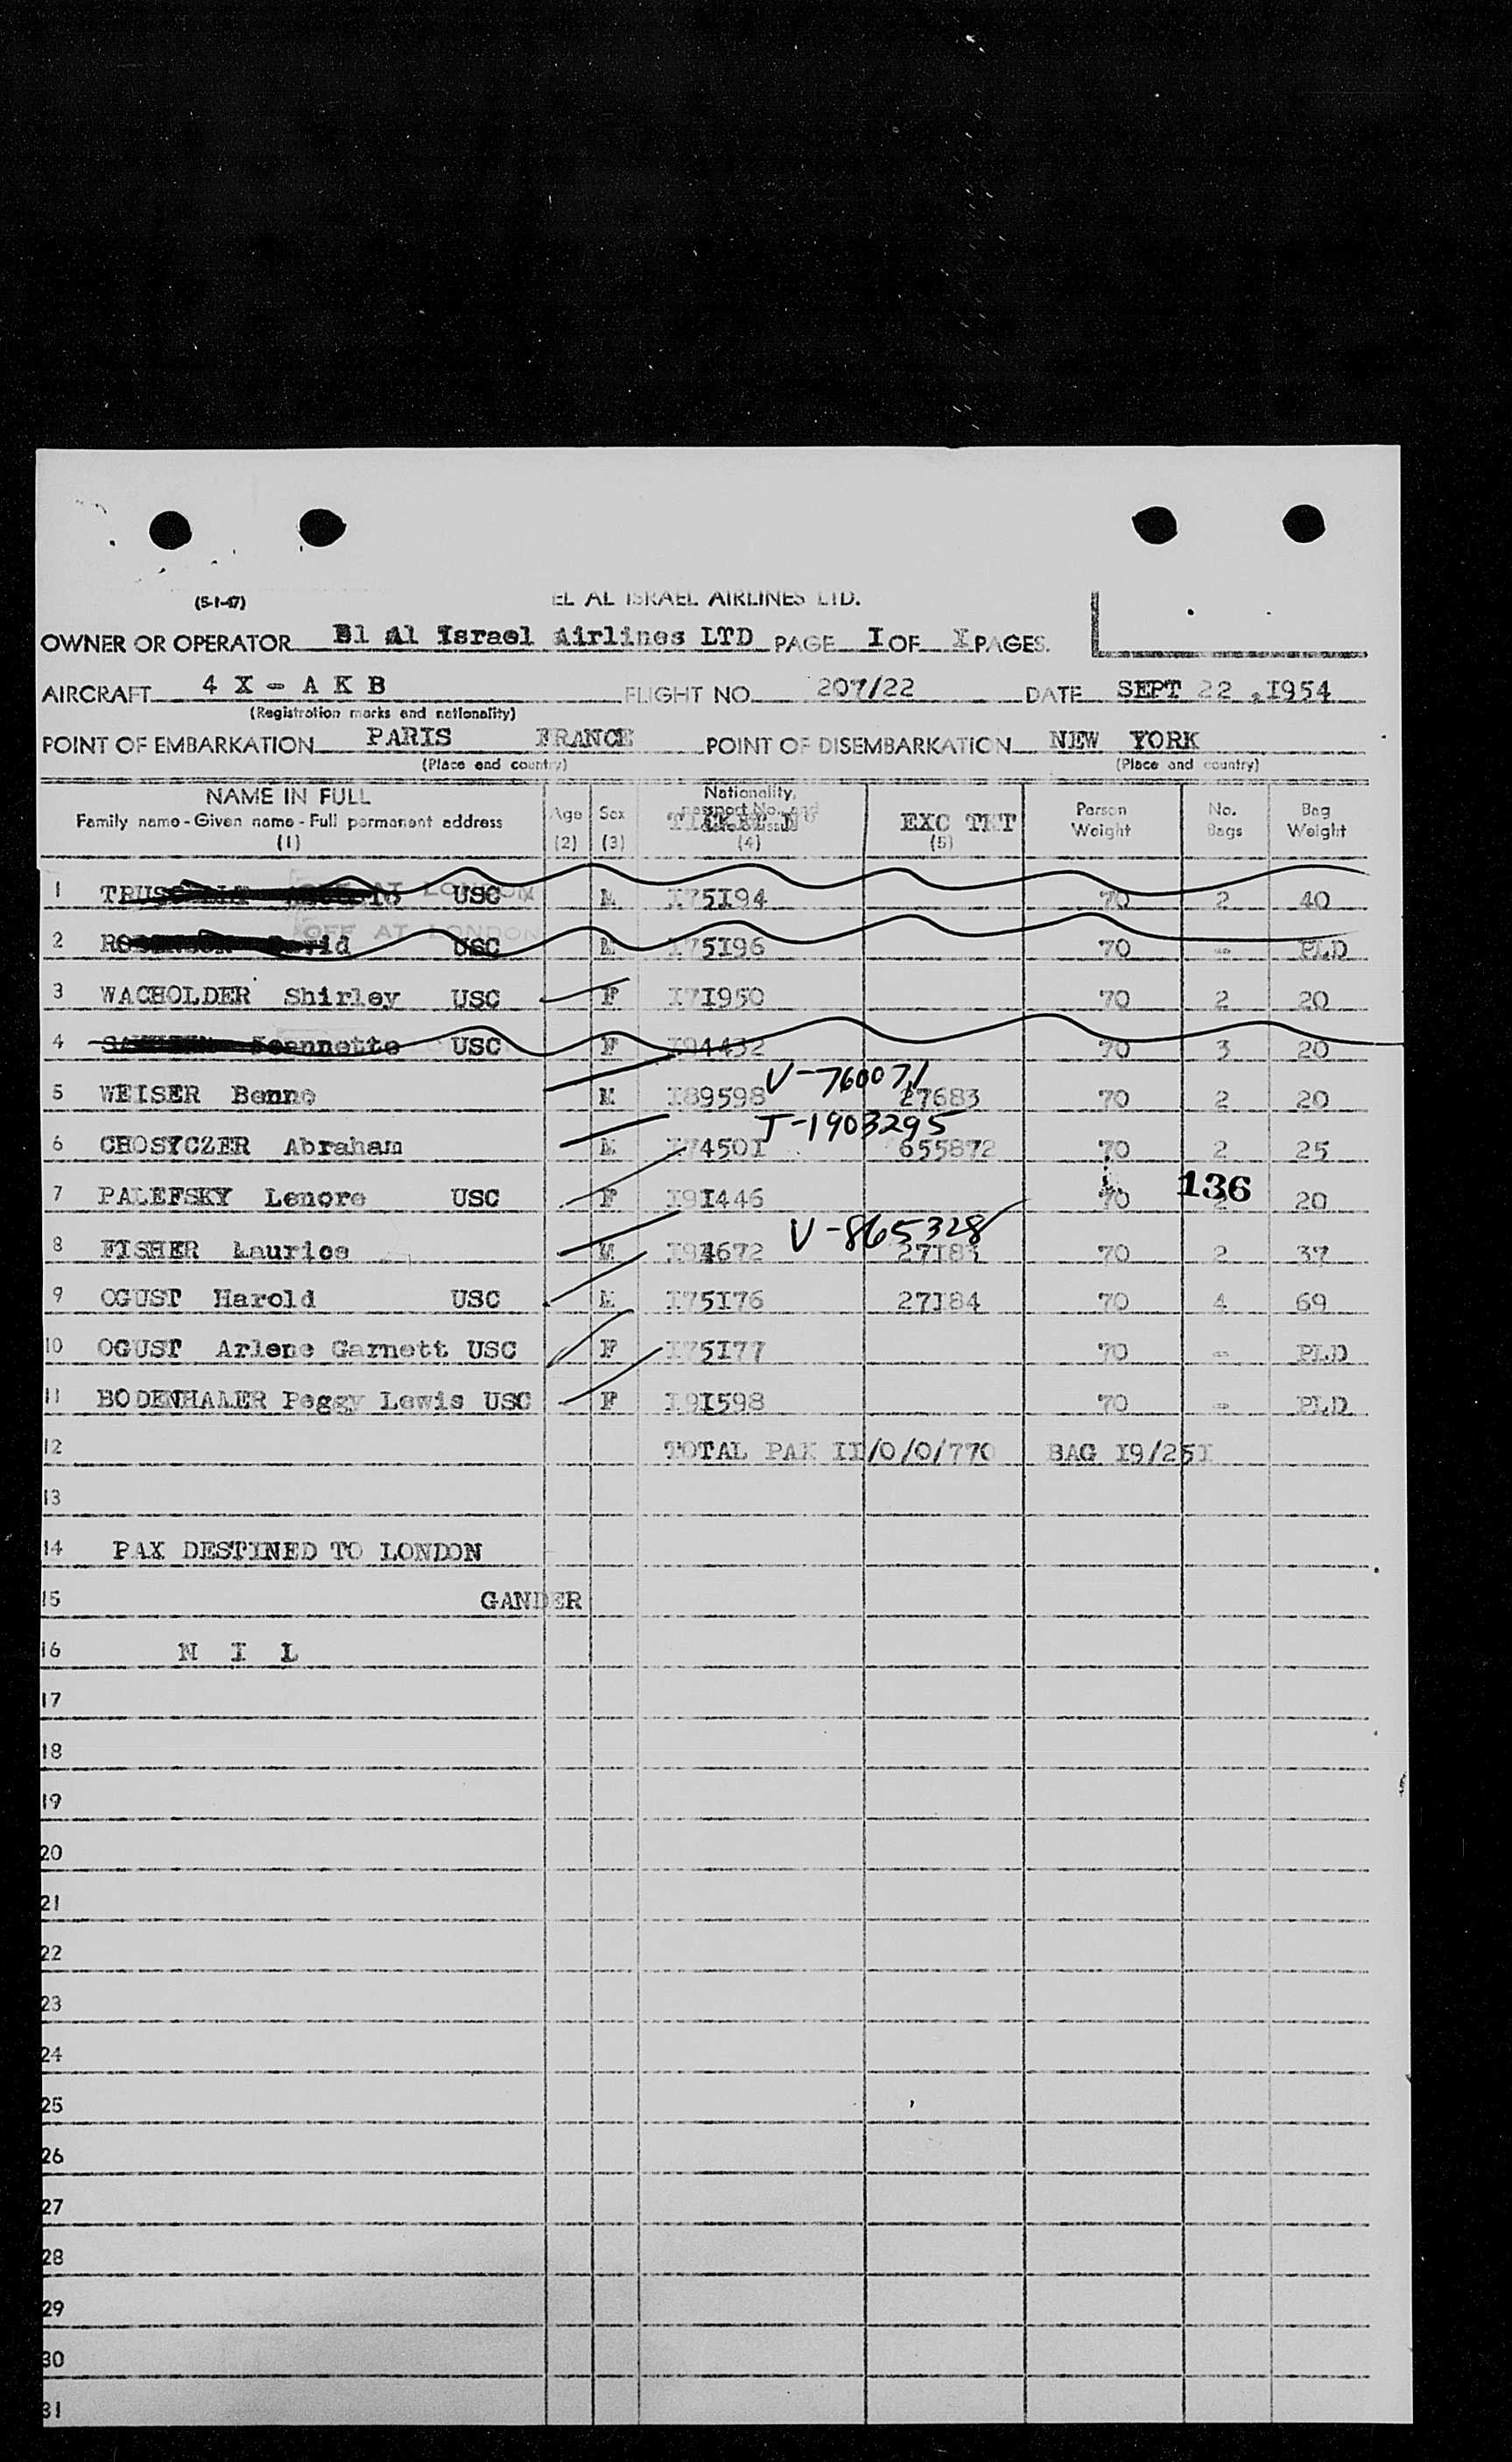 (5-1-47)
EL AL ISRAEL AIRLINES LTD.
OWNER OR OPERATOR El Al Israel Airlines LTD PAGE I OF I PAGES.
AIRCRAFT 4 X - A K B FLIGHT NO. 207/22 DATE SEPT 22 ,1954
(Registration marks and nationality)
POINT OF EMBARKATION PARIS FRANCE POINT OF DISEMBARKATION NEW YORK
(Place and country) (Place and country)
NAME IN FULL Age Sex Nationality, passport No. and TICKET N° EXC TKT Person Weight No. Bags Bag Weight
Family name - Given name - Full permanent address
(1) (2) (3) (4) (5)
OFF AT LONDON
1 USC M I75I94 70 2 40
OFF AT LONDON
2 USC M I75I96 70 - PLD
3 WACHOLDER Shirley USC F I7I950 70 2 20
4 Jeannette USC F I94432 70 3 20
V-760071
5 WEISER Benno M I89598 27683 70 2 20
J-1903295
6 CHOSYCZER Abraham M I7450I 655872 70 2 25
136
7 PALEFSKY Lenore USC F I9I446 70 2 20
V-865328
8 FISHER Maurice M I94672 27I83 70 2 37
9 OGUST Harold USC M I75I76 27I84 70 4 69
10 OGUST Arlene Garnett USC F I75I77 70 - PLD
11 BODENHAMER Peggy Lewis USC F I9I598 70 - PLD
12 TOTAL PAX II/0/0/770 BAG I9/25I
13
14 PAX DESTINED TO LONDON
15 GANDER
16 N I L
17
18
19
20
21
22
23
24
25
26
27
28
29
30
31